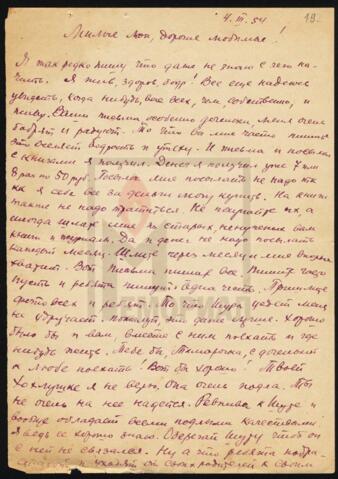 4. III. 54
19.
Милые мои, дорогие любимые!
Я так редко пишу что даже не знаю с чего на-
чинать. Я жив, здоров, бодр! Все еще надеюсь
увидеть, когда нибудь, вас всех, чем, собственно, и
живу. Ваши письма, особенно доченьки, меня очень
бодрят и радуют. То что вы мне часто пишете
это вселяет бодрость и
с книгами я получил. Денег я получил уже 7 или
8 раз по 50 руб. Посылок мне посылать не надо так
как я себе все за деньги могу купить. На книги
также не надо тратиться. Не покупайте их, а
иногда шлите мне из старых, ненужных вам
книг и журналы. Да и денег не надо посылать
каждый месяц. Шлите через месяц и мне вполне
хватит. Вот письма пишите все. Пишите чаще
Пусть и ребята пишут одна честь. Пришлите
фото всех и ребят. То что Шура уедет меня
не удручает, это даже лучше. Хорошо
было бы и вам, вместе с ним поехать и где
нибудь пожить. Тебе бы, Тамарочка, с доченькой
к Любе поехать! Вот бы хорошо! Твоей
Хохлушке я не верю. Она очень подла. Ты
не очень на нее надейся. Ревнива к Шуре и
вообще обладает всеми подлыми качествами
я ведь ее хорошо знаю. Оберегай Шуру чтоб он
с ней не связался. Ну а что ребята
и уходят от своих родителей к своим